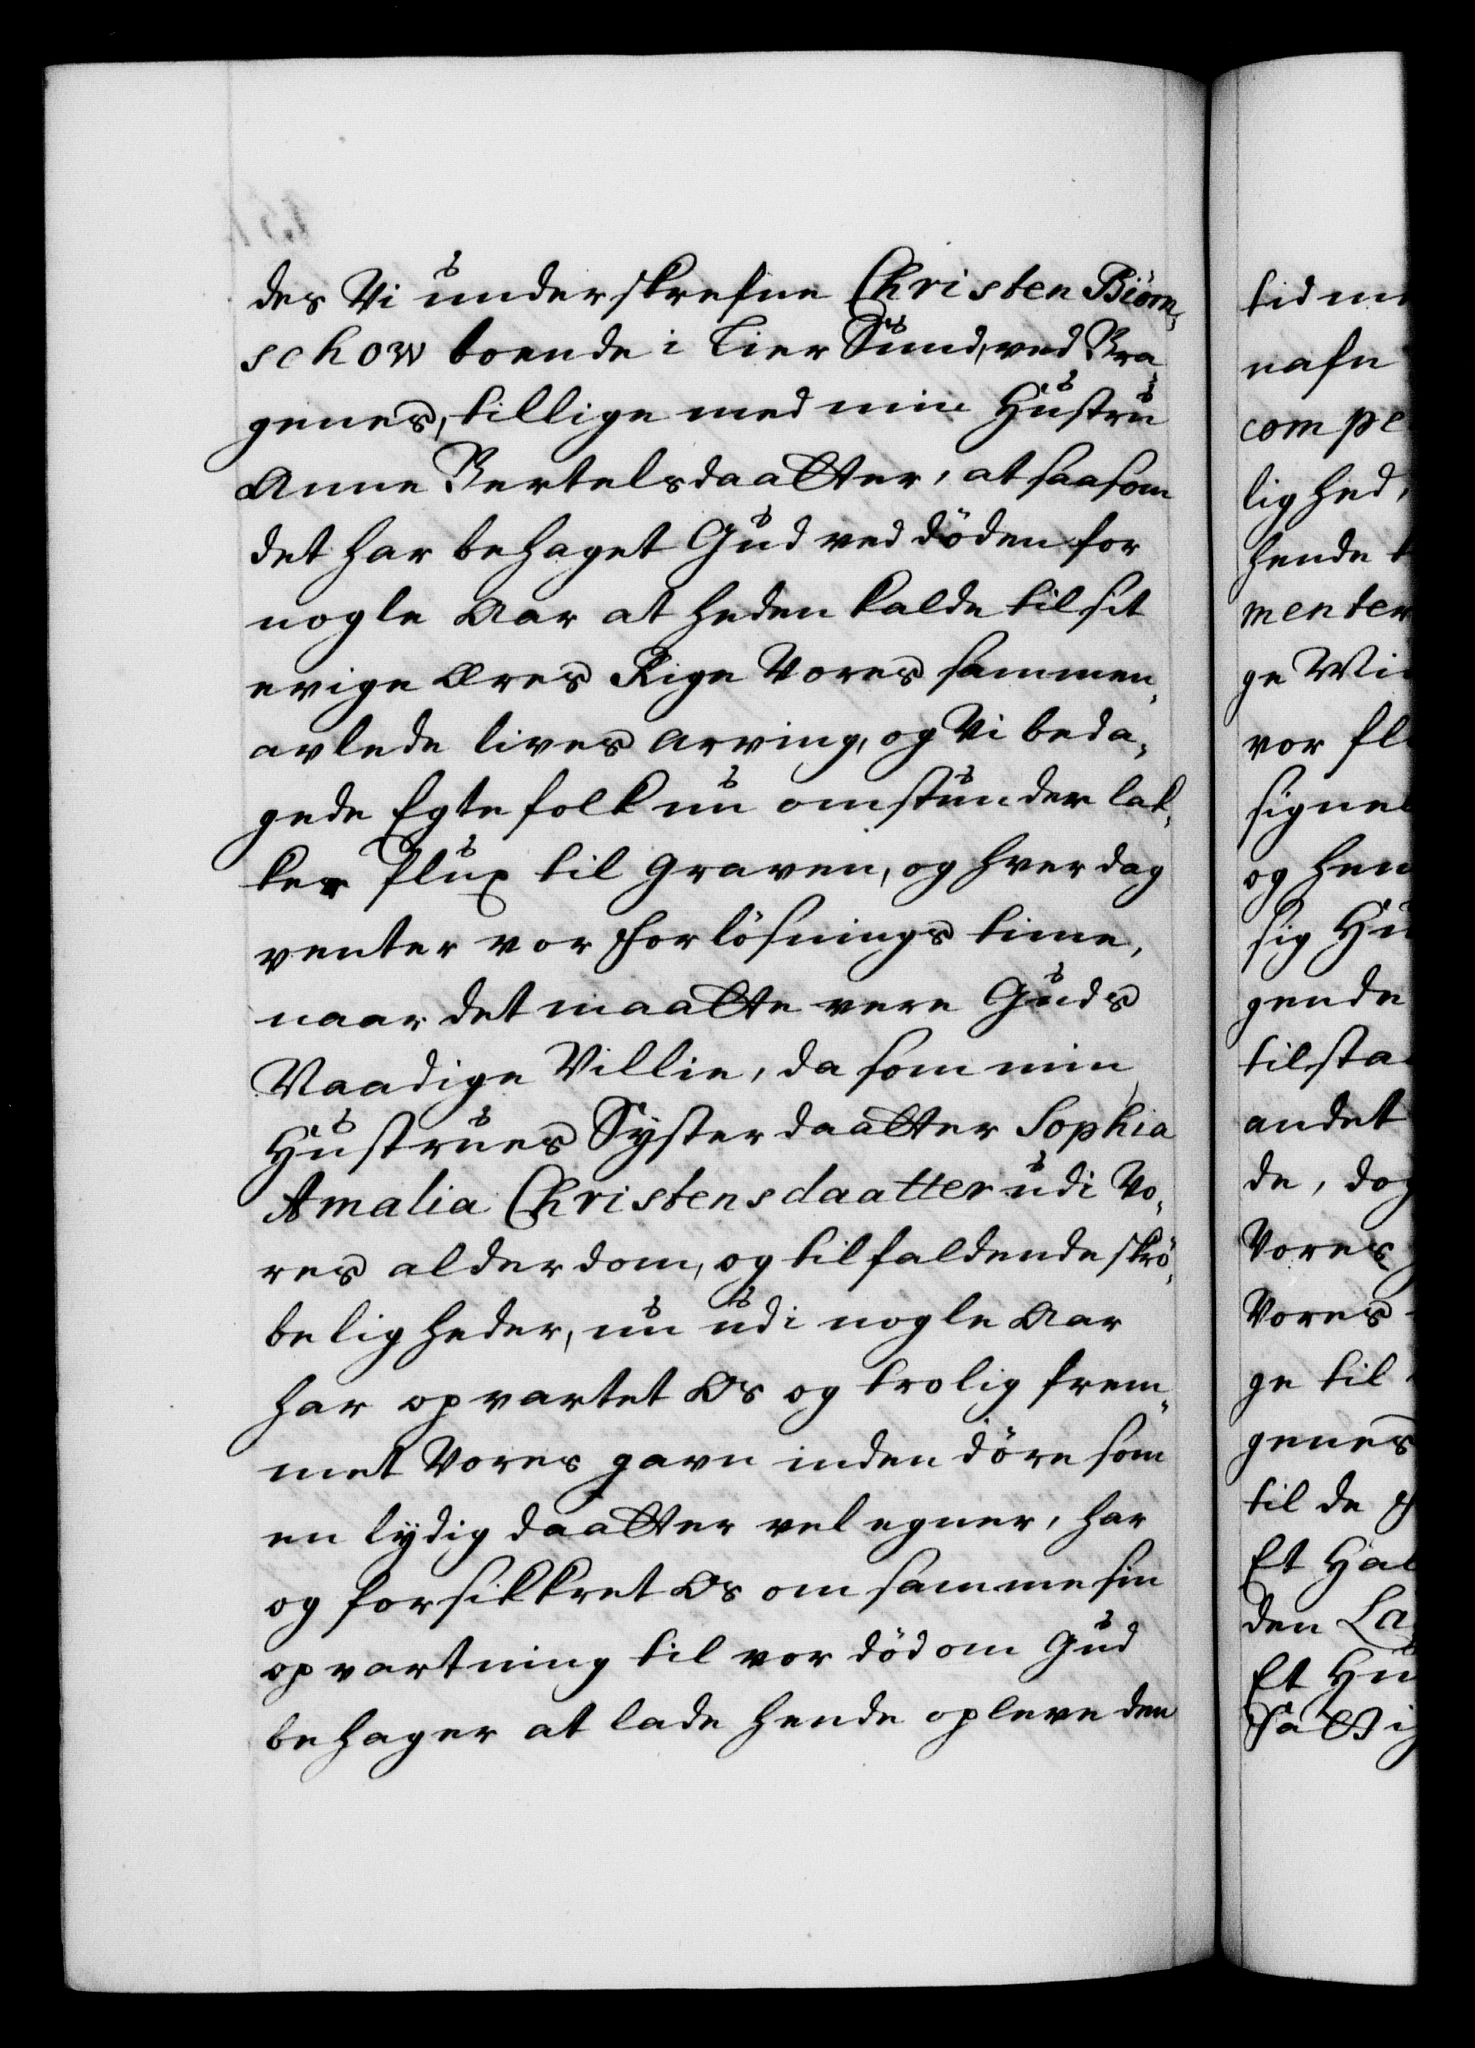 des Vi underskrefne Christen Biörn-
schow boende i Lier Sund, ved Bra-
genes, tillige med min Hustru
Anne Bertelsdaatter, at saasom
det har behaget Gud ved döden for
nogle Aar at heden kalde til sit
evige Æres Rige Vores sammen-
avlede lives Arving, og Vi beda-
gede Egtefolk nu omstunder lak-
ker flux til Graven, og hver dag
venter vor forlösnings time,
naar det maatte vere Guds
Naadige Villie, da som min
Hustrues Syster daatter Sophia
Amalia Christensdaatter udi Vo-
res alderdom, og tilfaldende skrö-
beligheder, nu udi nogle Aar
har opvartet Os og trolig frem-
met Vores gavn inden döre som
en lydig daatter vel egner, har
og forsikkret Os om samme sin
opvartning til vor död om Gud
behager at lade hende opleve den
nafn
compe
lighed,
hende
menter
ge
vor
signel
og hen
sig
gende
tilsta
andet
de, dog
Vores
Vores
ge til
genes
til de
Et
den La
Et